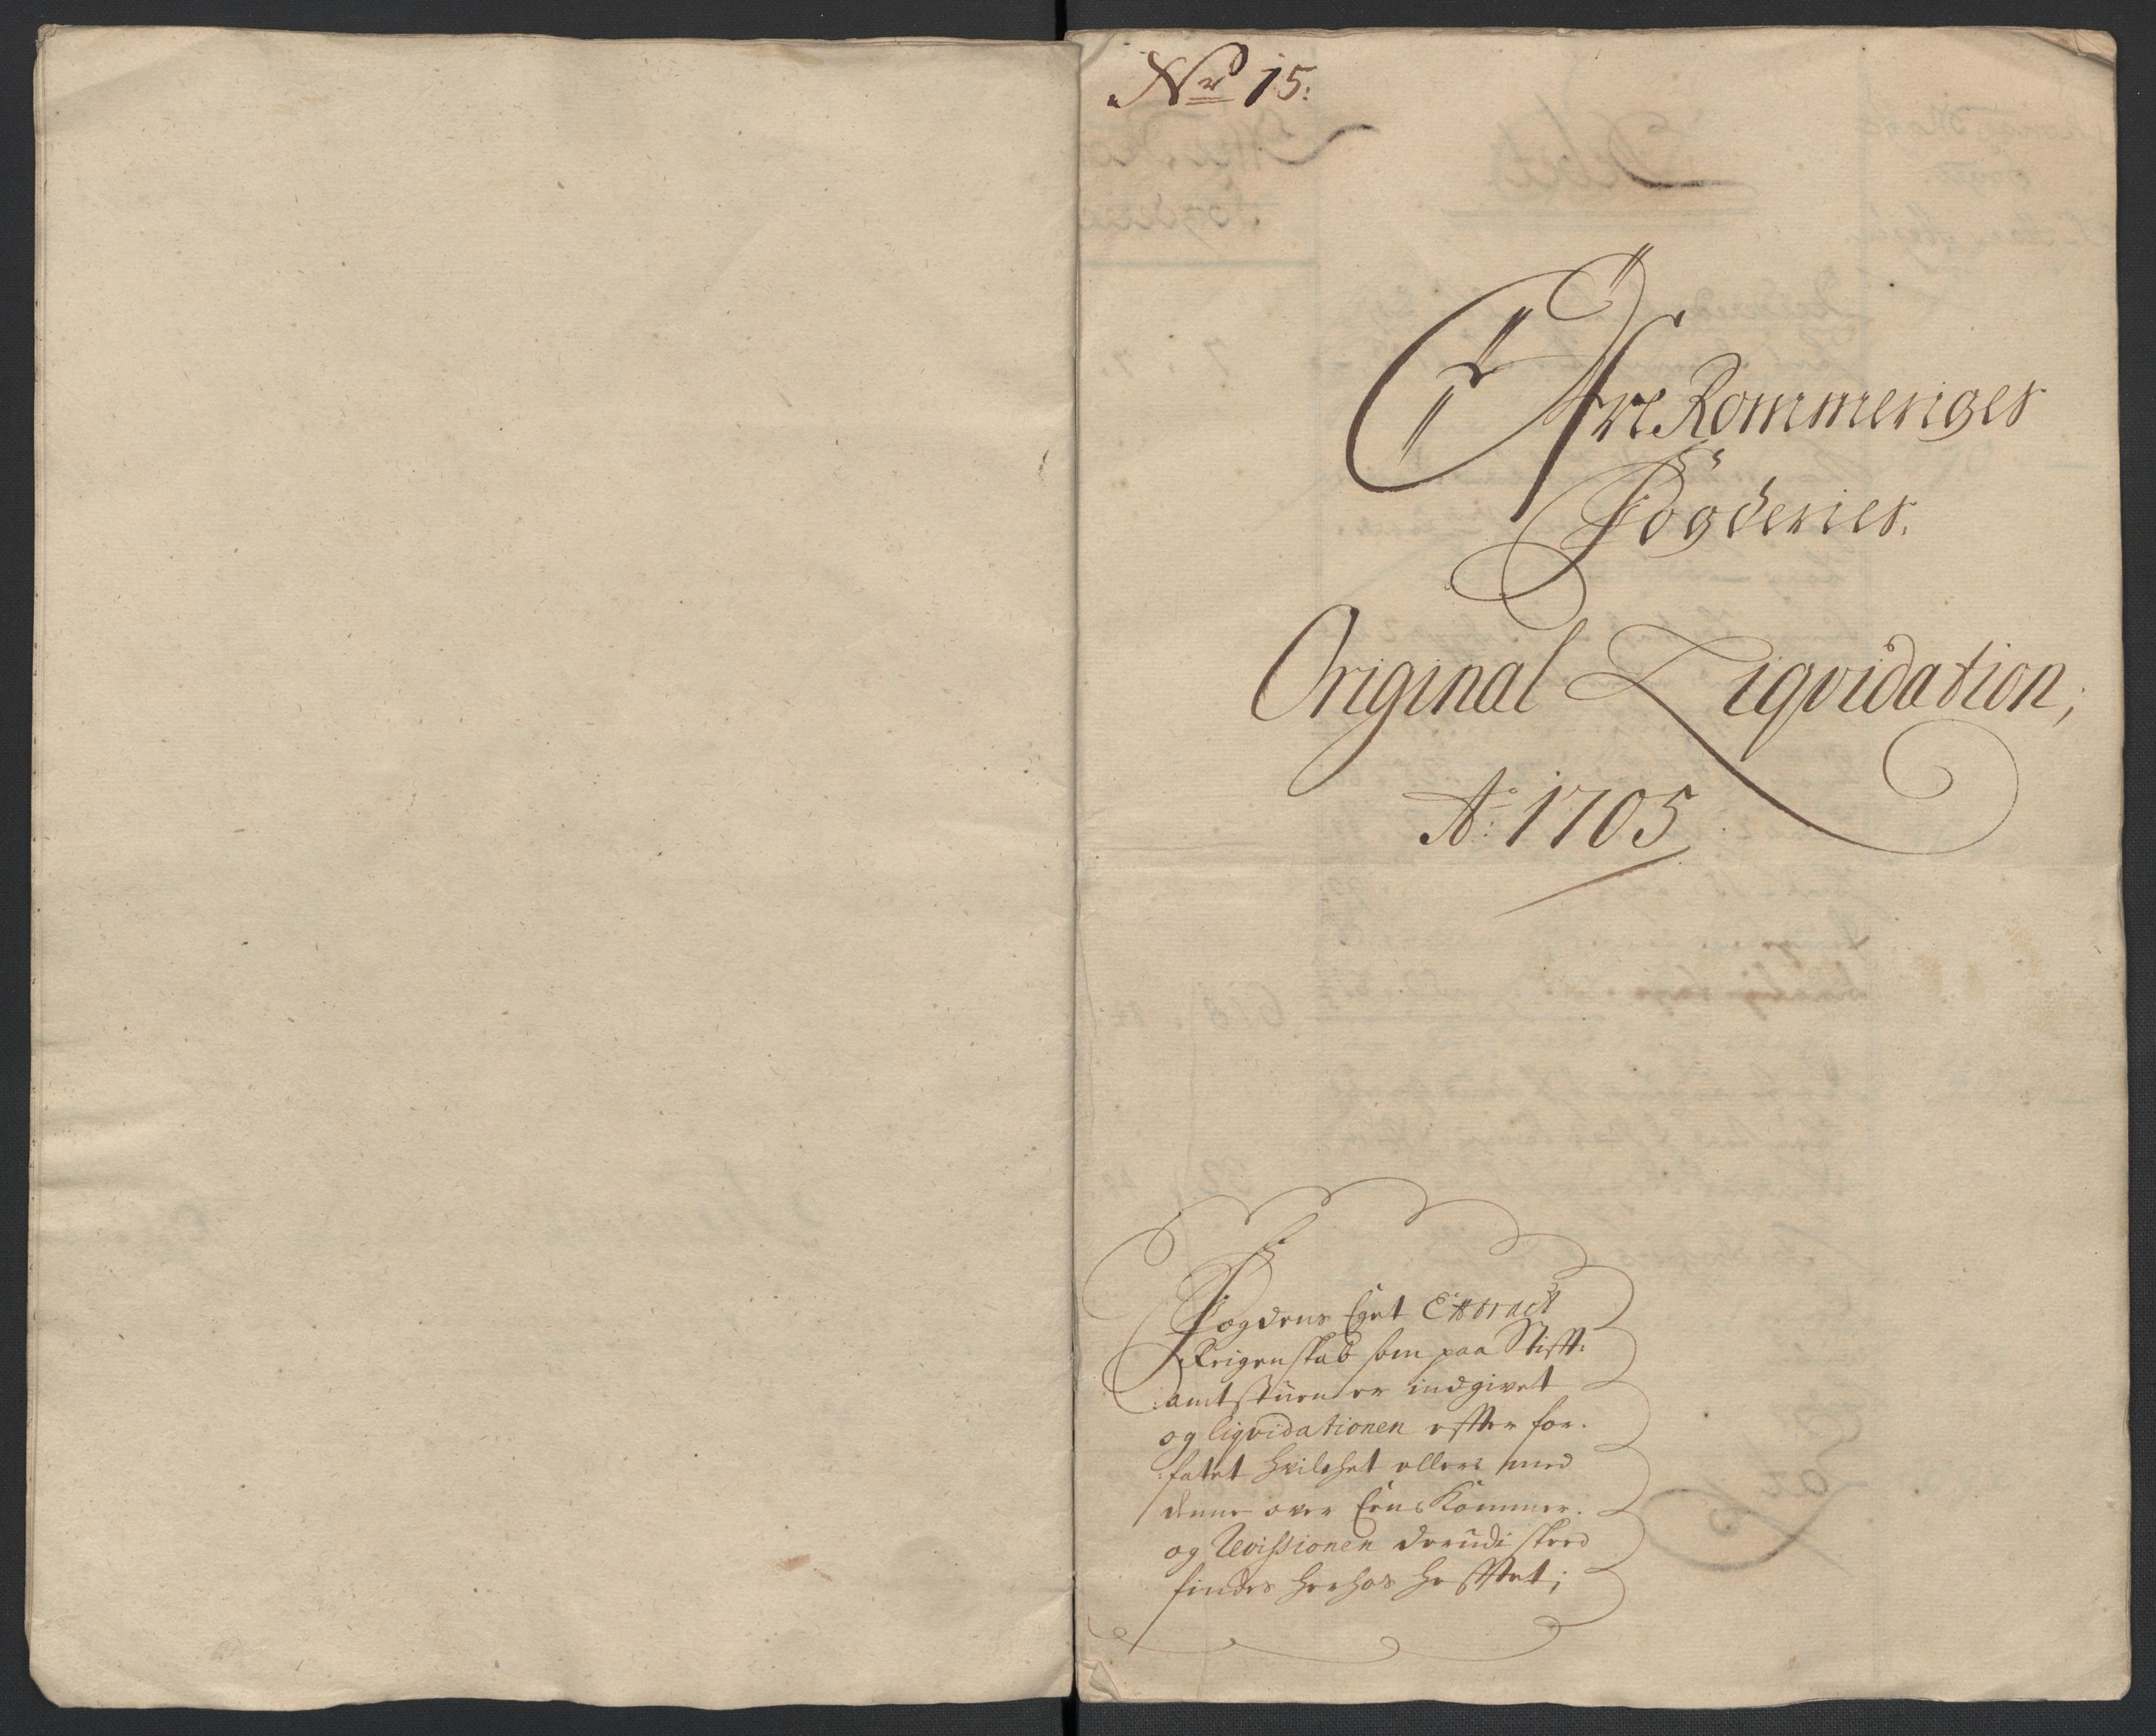 No 15.
Øfre Rommeriges
Fogderies.
Original Liqvidation,
Ao: 1705
Fogdens Eget Extract
Reigenskab som paa Stifft:
amtstuen er indgivet
og liqvidationen effter for:
:fatet hvilchet ellers med
denne over Eens kommer.
og Revissionen derudi skeed
findes herhos hefftet;